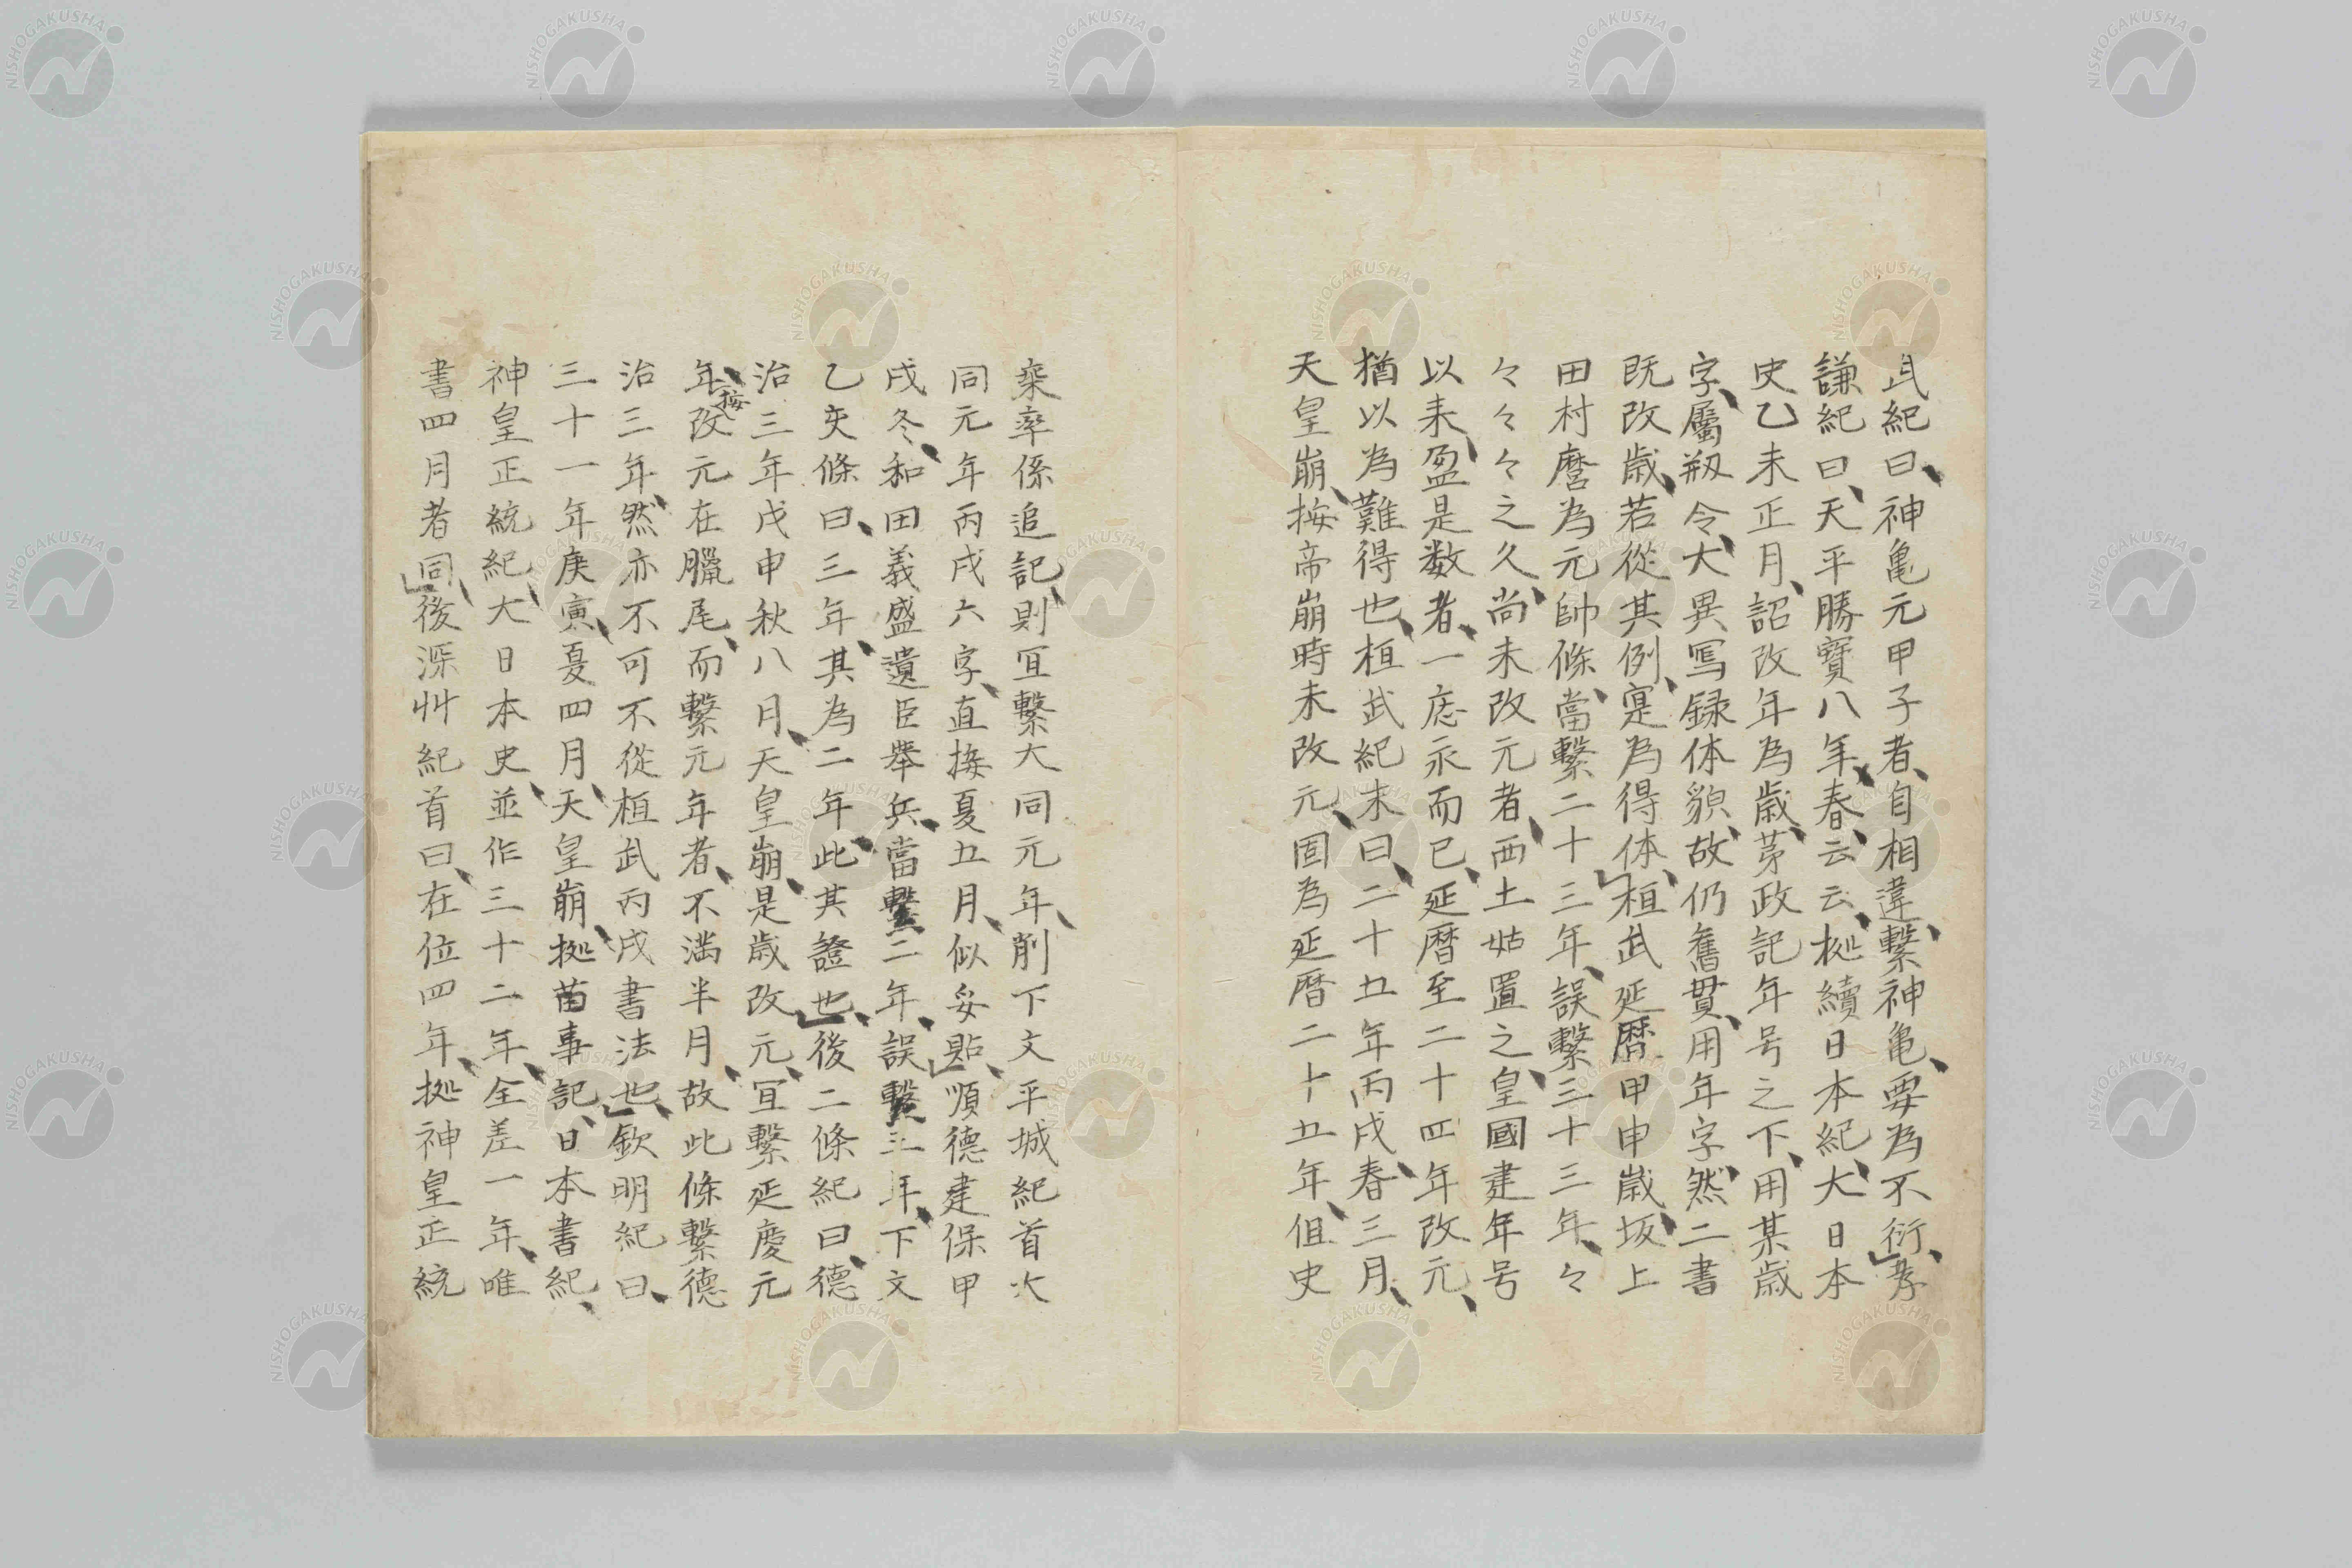 武紀曰、神亀元甲子者、自相違、繫神亀、要為不衍」孝
謙紀曰、天平勝寶八年、春云云、拠續日本紀、大日本
史乙未正月、詔改年為歳、苐政記年号之下、用某歳
字、屬剏令、大異寫録体貌、故仍舊貫、用年字、然二書
既改歳、若從其例、寔為得体」桓武延暦甲申歳、坂上
田村麿為元帥條、當繫二十三年、誤繫三十三年、々
々々々之久、尚未改元者、西土姑置之、皇國建年号
以来、盈是数者、一応永而已、延暦至二十四年改元、
猶以為難得也、桓武紀末曰、二十五年丙戌春三月、
天皇崩、按帝崩時未改元、固為延暦二十五年、但史
乗率係追記、則宜繫大同元年、削下文平城紀首大
同元年丙戌六字、直接夏五月、似妥貼」順德建保甲
戌冬、和田義盛遺臣舉兵、當繫二年、誤繫三年、下文
乙亥條曰、三年、其為二年、此其證也」後二條紀曰、德
治三年戊申秋八月、天皇崩、是歳改元、宜繫延慶元
年、按改元在臘尾、而繫元年者、不満半月、故此條繫德
治三年、然亦不可不從桓武丙戌書法也」欽明紀曰、
三十一年庚寅、夏四月、天皇崩、拠舊事記、日本書紀、
神皇正統紀、大日本史、並作三十二年、全差一年、唯
書四月者同」後深艸紀首曰、在位四年、拠神皇正統